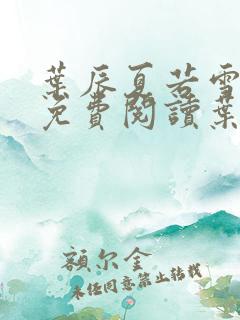 葉辰夏若雪
免費閱讀葉
額尔金
未任同意禁止转载